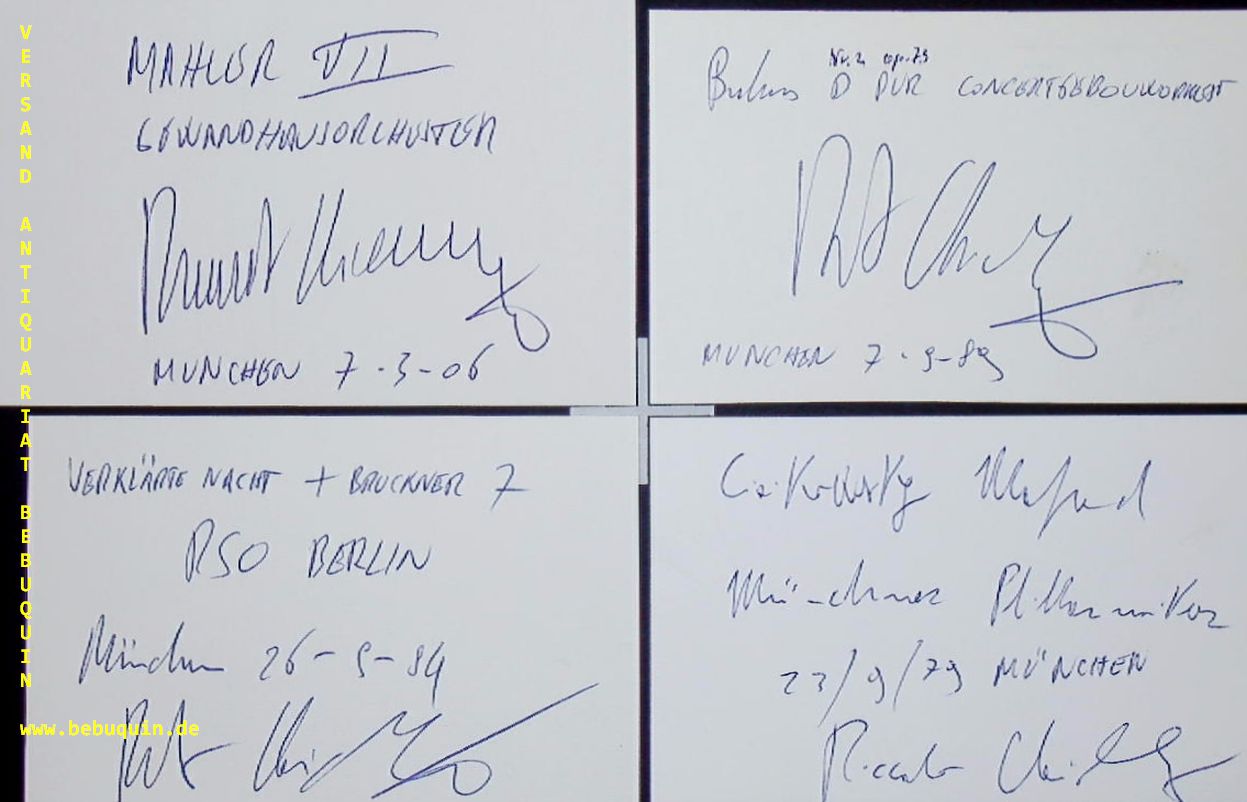 MAHLER VII
GEWANDHAUSORCHESTER
MÜNCHEN 7-3-06
Brahms D DUR Nr. 2 op. 73 CONCERTGEBOUWORKEST
MÜNCHEN 7-9-89
VERKLÄRTE NACHT + BRUCKNER 7
RSO BERLIN
München 26-9-84
Ciaikowsky Manfred
Münchner Philharmoniker
23/9/79 MÜNCHEN
Riccardo Chailly
VERSAND ANTIQUARIAT BEBUQUIN
www.bebuquin.de